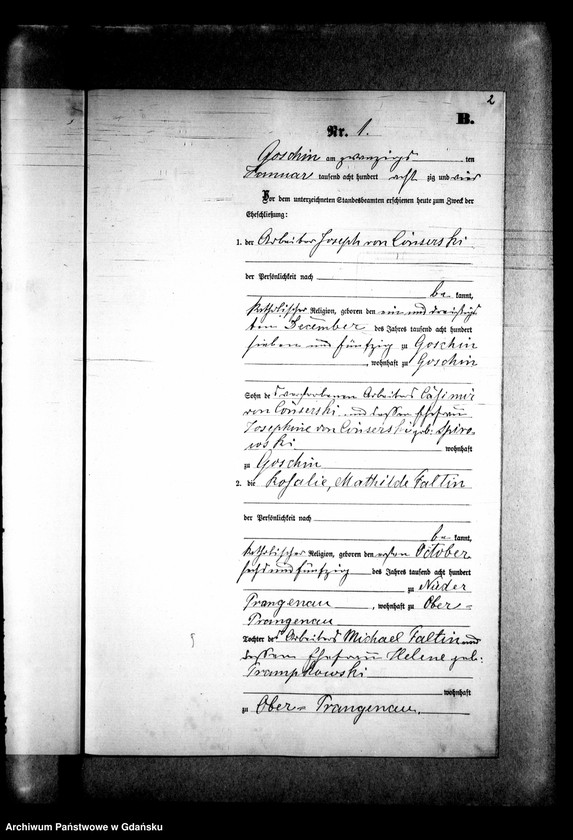 2
B.
Nr. 1.
Goschin am zwanzigs ten
Januar tausend acht hundert acht zig und vier
Vor dem unterzeichneten Standesbeamten erschienen heute zum Zweck der
Eheschließung:
1. der Arbeiter Joseph von
der Persönlichkeit nach
be kannt,
katholischer Religion, geboren den ein und dreißigs
ten December des Jahres tausend acht hundert
sieben und fünfzig zu Goschin
, wohnhaft zu Goschin
Sohn des verstorbenen Arbeiters Casimir
von und dessen Ehefrau
Josephine von geb:
wohnhaft
zu Goschin
2. die Rosalie, Mathilde Faltin
der Persönlichkeit nach
be kannt,
katholischer Religion, geboren den ersten October
sechs und fünfzig des Jahres tausend acht hundert
zu Nieder
Prangenau, wohnhaft zu Ober-
Prangenau
Tochter des Arbeiters Michael Faltin und
dessen Ehefrau Helene geb:
Trampkowski
wohnhaft
zu Ober- Prangenau.
Archiwum Państwowe w Gdańsku